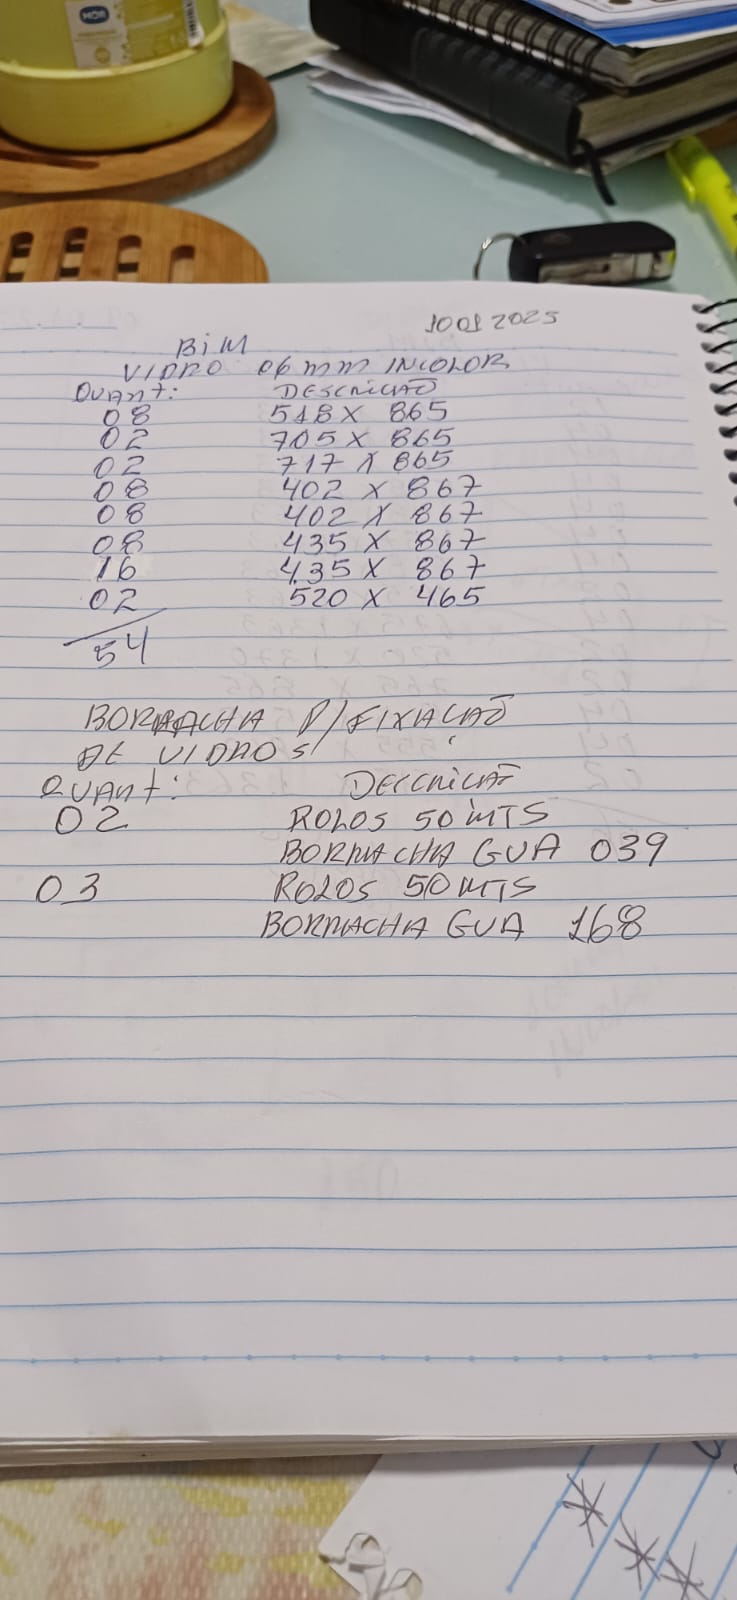 MOR
10 01 2025
BiM
VIDRO 06 mm INCOLOR
QUANT: DESCRIÇÃO
08 518 X 865
02 705 X 865
02 717 X 865
08 402 X 867
08 402 X 867
08 435 X 867
16 435 X 867
02 520 X 465
54
BORRACHA P/ FIXAÇÃO
DE VIDROS
QUANT: DESCRIÇÃO
02 ROLOS 50 MTS
BORRACHA GUA 039
03 ROLOS 50 MTS
BORRACHA GUA 168